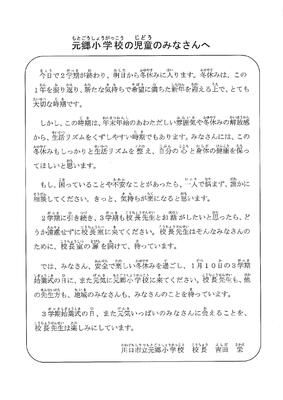 元郷小学校の児童のみなさんへ
今日で2学期が終わり、明日から冬休みに入ります。冬休みは、この
1年を振り返り、新たな気持ちで希望に満ちた新年を迎える上で、とても
大切な時期です。
しかし、この時期は、年末年始のあわただしい雰囲気や冬休みの解放感
から、生活リズムをくずしやすい時期でもあります。みなさんには、この
冬休みもしっかりと生活リズムを整え、自分の心と身体の健康を保っ
てほしいと思います。
もし、困っていることや不安なことがあったら、一人で悩まず、誰かに
相談してください。きっと、気持ちが楽になると思います。
2学期に引き続き、3学期も校長先生とお話がしたいと思ったら、ど
うか遠慮せずに校長室に来てください。校長先生はそんなみなさんの
ために、校長室の扉を開けて、待っています。
では、みなさん、安全で楽しい冬休みを過ごし、1月10日の3学期
始業式の日に、また元気に元郷小学校に来てください。校長先生も、他
の先生方も、地域のみなさんも、みなさんのことを待っています。
3学期始業式の日、また元気いっぱいのみなさんに会えることを、
校長先生は楽しみにしています。
川口市立元郷小学校 校長 吉田 栄